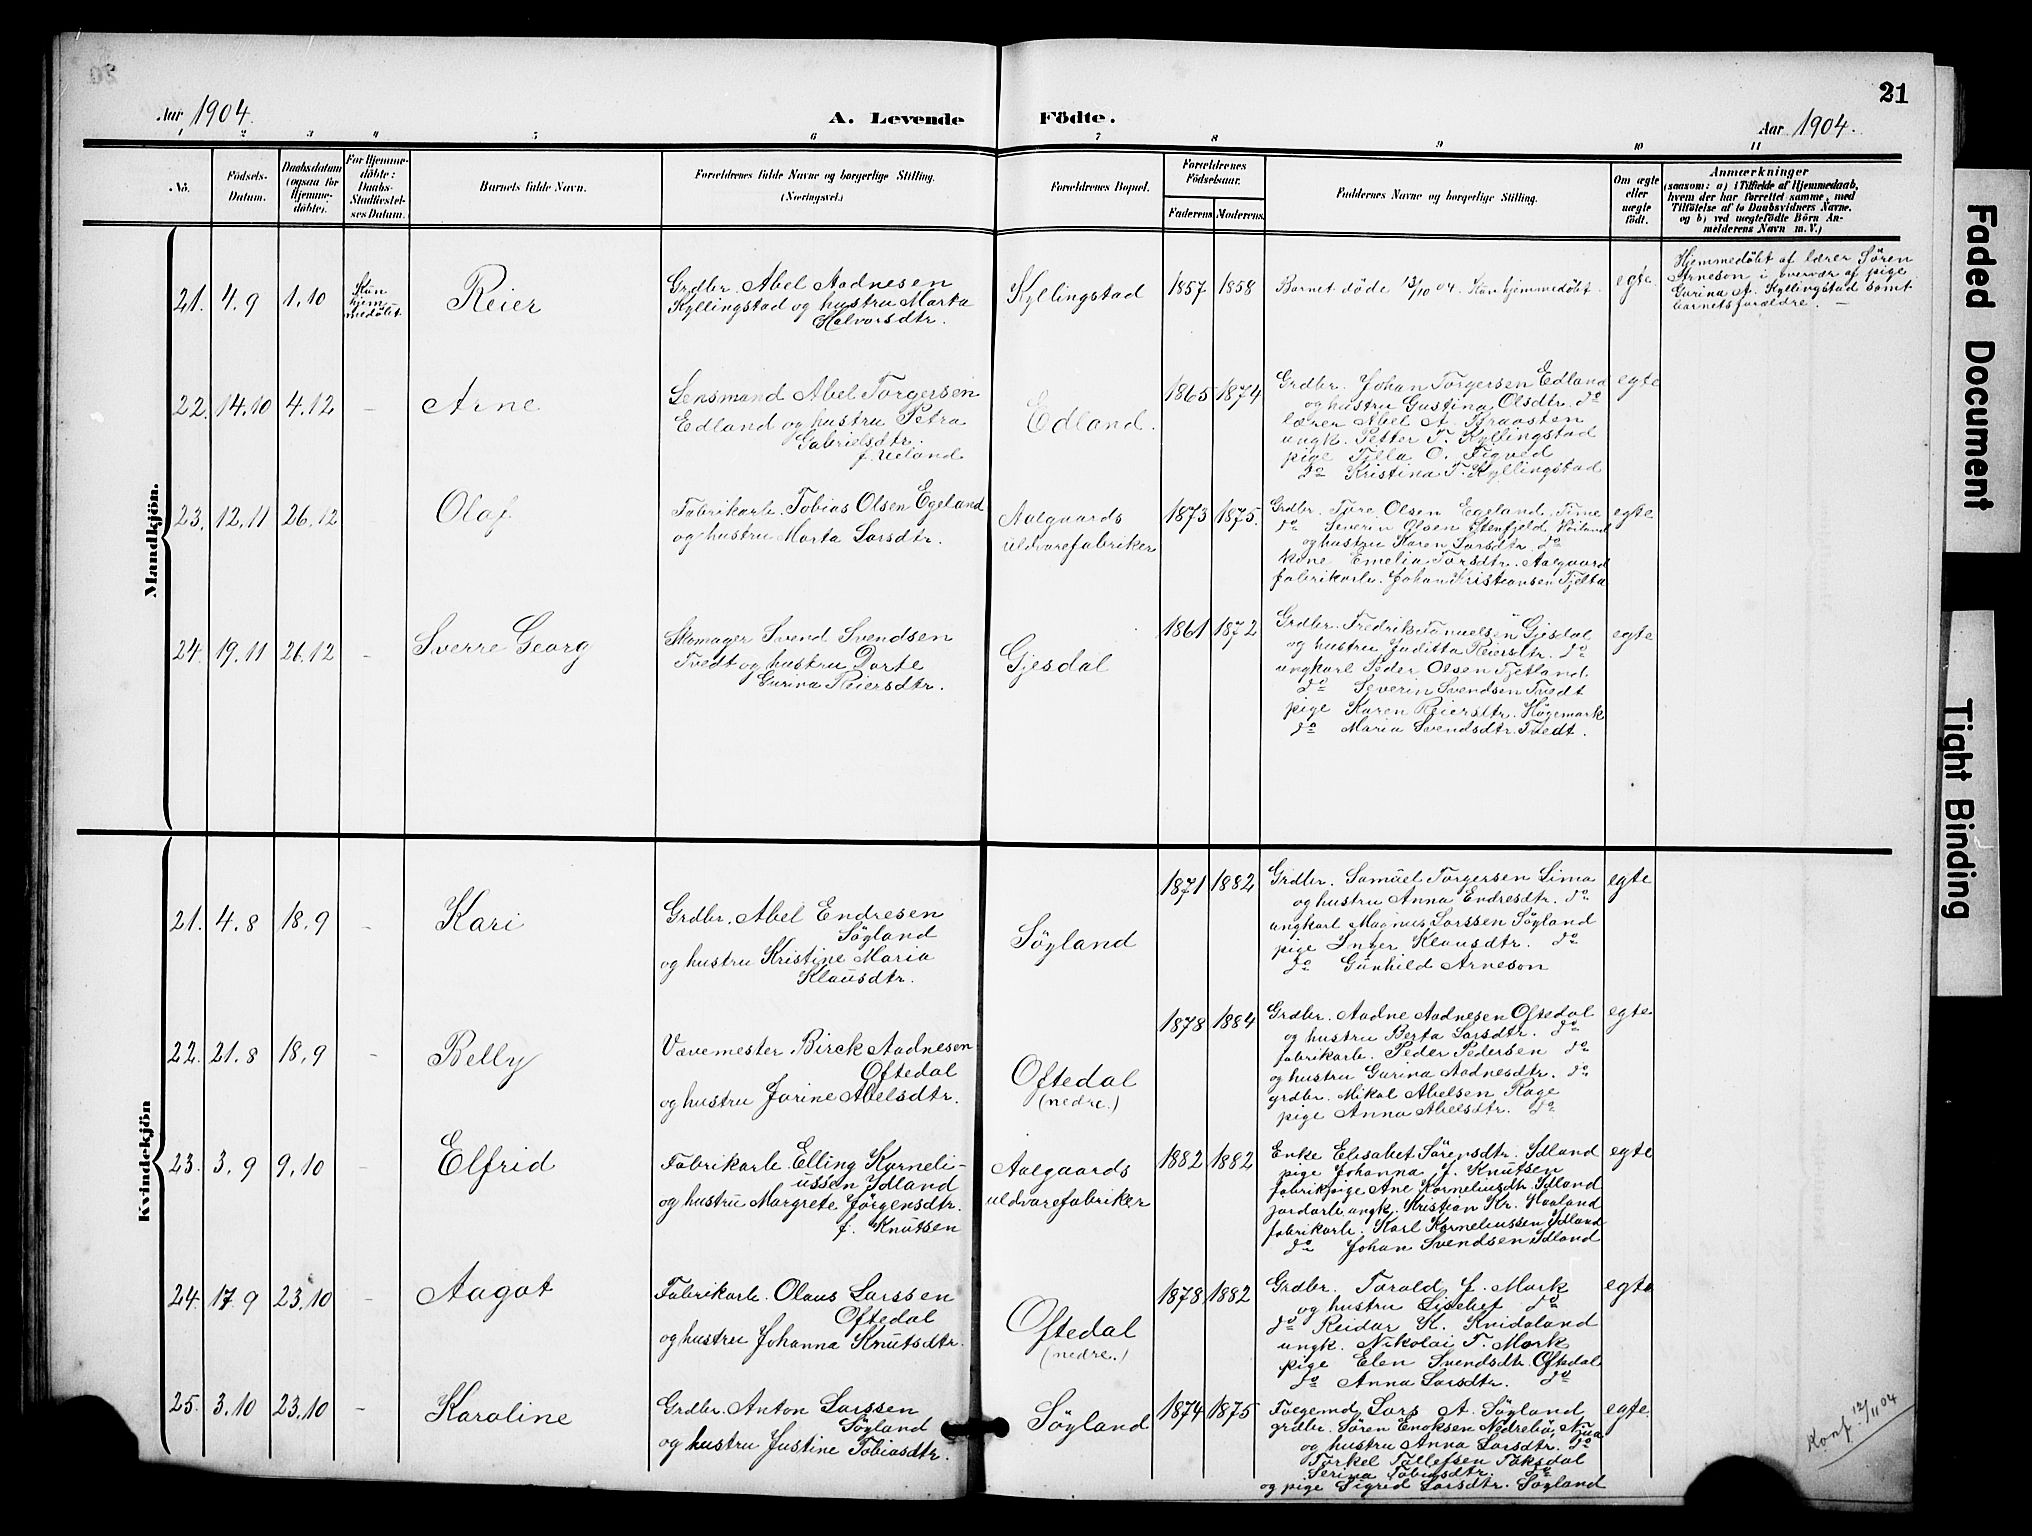 21
Aar 1904.
A. Levende Födte.
Aar 1904.
1 2 3 4 5 6 7 8 9 10 11
No.
Födsels-
Datum.
Daabsdatum
(ogsaa for
Hjemme-
döbte).
For Hjemme-
döbte:
Daabs-
Stadfæstel-
ses Datum.
Barnets fulde Navn.
Forældrenes fulde Navne og borgerlige Stilling.
(Næringsvei.)
Forældrenes Bopæl.
Forældrenes
Födselsaar.
Faderens Moderens
Faddernes Navne og borgerlige Stilling.
Om ægte
eller
uægte
født.
Anmærkninger
(saasom: a) i Tilfælde af Hjemmedaab,
hvem der har forrettet samme, med
Tilföielse af to Daabsvidners Navne.
og b) ved uægtefödte Börn An-
melderens Navn m. V.)
Mandkjön.
21. 4.9 1.10
Kun
hjem-
medøbt
Reier
Grdbr. Abel Aadnesen
Kyllingstad og hustru Marta
Halvorsdtr.
Kyllingstad
1857 1858
Barnet døde 13/10 04. Kun hjemmedøbt.
egte
Hjemmedøbt af lærer Søren
Arneson i overvær af pige
Gurina A. Kyllingstad samt
barnets forældre. —
22. 14.10 4.12 –
Arne
Lensmand Abel Torgersen
Edland og hustru Petra
Gabrielsdtr.
f. Ueland
Edland.
1865 1874
Grdbr. Johan Torgersen Edland
og hustru Gustina Olsdtr. do
lærer Abel A. Braasten
ungk. Petter T. Kyllingstad
pige Tella O. Figved
do Kristina T. Kyllingstad
egte
23. 12.11 26.12
Olaf
Fabrikarb. Tobias Olsen Egeland
og hustru Marta Larsdtr.
Aalgaards
uldvarefabriker
1873 1875.
Grdbr. Ture Olsen Egeland. Time
do Severin Olsen Stenfjeld
og hustru Karen Larsdtr. do
kone Emelia Torsdtr. Aalgaard
fabrikarb. Johan Kristiansen Tjelta
egte
24. 19.11 26.12 –
Sverre Georg
Skomager Svend Svendsen
Tvedt og hustru Dorte
Gurina Reiersdtr.
Gjesdal
1861 1872
Grdbr. Fredrik Samuelsen Gjesdal
og hustru Juditta Reiersdtr. do
ungkarl Peder Olsen Tjetland.
do Severin Svendsen Tvedt
pige Karen Reiersdtr. Høgemark
do Maria Svendsdtr. Tvedt.
egte
Kvindekjön
21. 4.8 18.9 –
Kari
Grdbr. Abel Endresen
Søyland
og hustru Kristine Maria
Klausdtr.
Søyland
1871 1882
Grdbr. Samuel Torgersen Lima
og hustru Anna Endresdtr. do
ungkarl Magnus Larssen Søyland
pige Inger Klausdtr. do
do Gunhild Arneson
egte
22. 21.8 18.9 –
Belly
Vævemester Birck Aadnesen
Oftedal
og hustru Jorine Abelsdtr.
Oftedal
(nedre.)
1878 1884
Grdbr. Aadne Aadnesen Oftedal
og hustru Berta Larsdtr. do
fabrikarb. Peder Pedersen do
og hustru Gurina Aadnesdtr. do
grdbr. Mikal Abelsen Rage
pige Anna Abelsdtr. do
egte
23. 3.9 9.10 –
Elfrid
Fabrikarb. Elling Korneli-
ussen Idland
og hustru Margrete Jørgensdtr.
f. Knutsen
Aalgaards
uldvarefabriker
1882 1882
Enke Elisabet Sørensdtr. Idland
pige Johanna J. Knutsen
fabrikpige Ane Korneliusdtr. Idland
jordarb. ungk. Kristian Kr. Haaland
fabrikarb. Karl Korneliussen Idland
do Johan Svendsen Idland
egte
24. 17.9 23.10 –
Aagot
Fabrikarb. Olaus Larssen
Oftedal
og hustru Johanna Knutsdtr.
Oftedal
(nedre.)
1878 1882
Grdbr. Torald J. Mork
og hustru Lisebet do
do Reidar K. Knidaland
ungk. Nikolai T. Mork
pige Elen Svendsdtr. Oftedal
do Anna Larsdtr. do
egte
25. 3.10 23.10 –
Karoline
Grdbr. Anton Larssen
Søyland
og hustru Justine Tobiasdtr.
Søyland
1874 1875
Følgemd Lars A. Søyland
grdbr. Søren Enoksen Nedrebø, Njaa
og hustru Anna Larsdtr. do
Torkel Tollefsen Taksdal
Serina Tobiasdtr. do
og pige Sigred Larsdtr. Søyland
egte
Konf. 12/11 04
Faded Document
Tight Binding